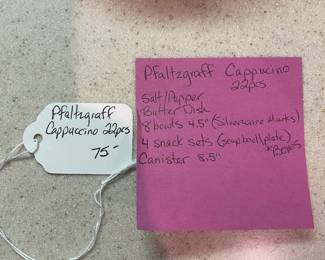 Pfaltzgraff
Cappuccino 22pcs
75-
Pfaltzgraff Cappucino
22pcs
Salt/Pepper
Butter Dish
8 bowls 4.5" (Silverware Marks)
4 snack sets (soup bowl/plate)
*Boxes
Canister 8.5"